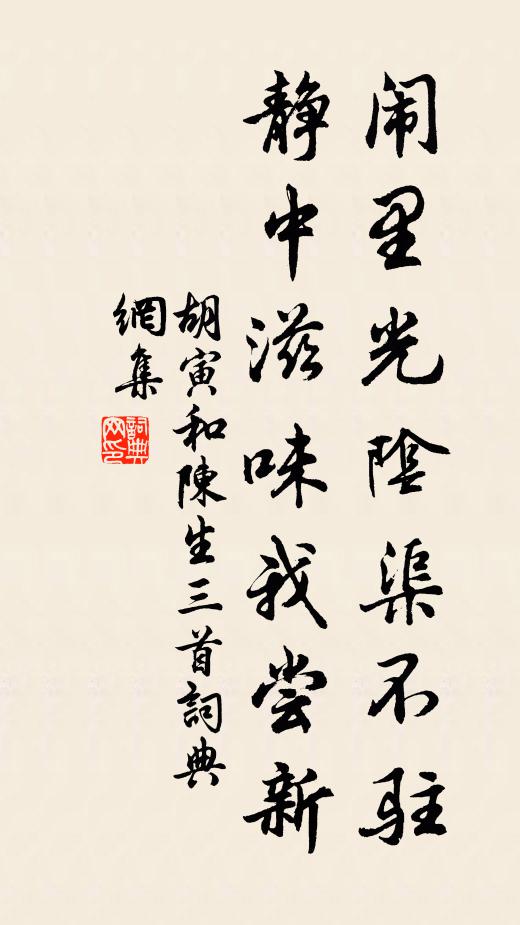 闹里光陰渠不駐
静中滋味我尝新
胡寅和陳生三首詞典
網集
詞典
网印